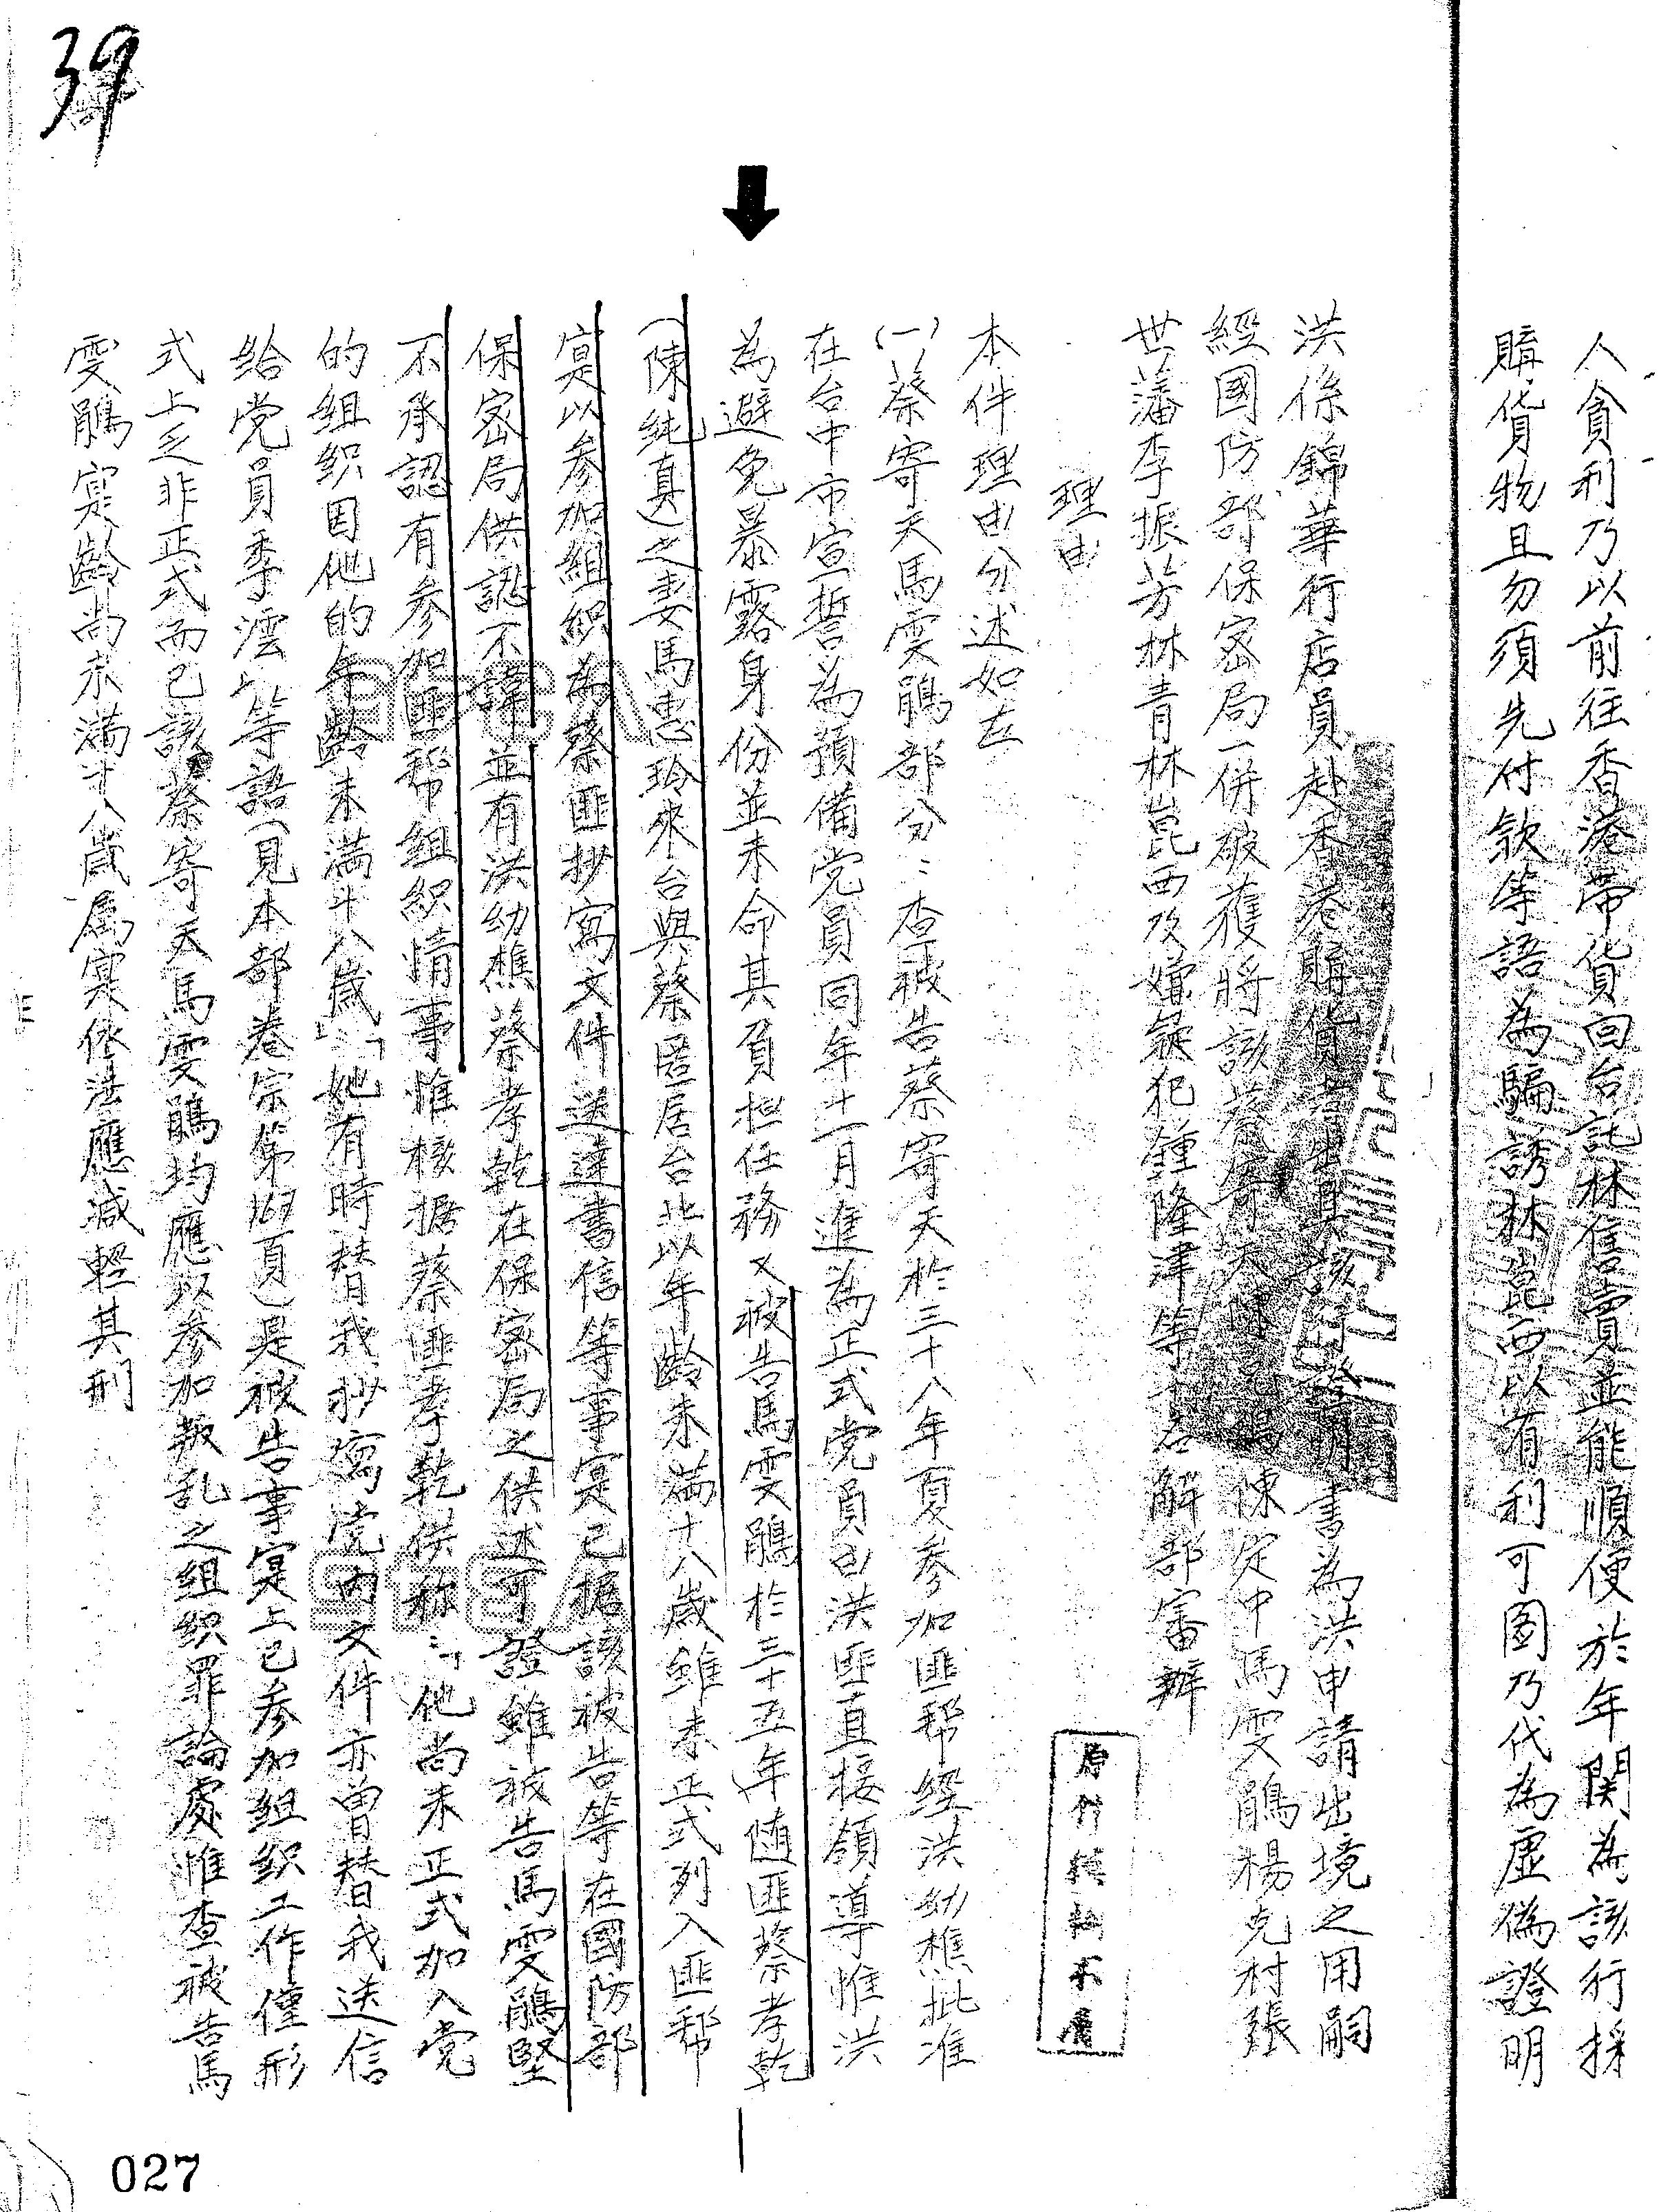 39
人貪利乃以前往香港帶貨回台託林售賣並能順便於年関為該行採
購貨物且勿須先付款等語為騙誘林崑西以有利可图乃代為虛偽證明
洪係錦華行店員赴香港購貨書為洪申請出境之用嗣
經國防部保密局一併破獲將該蔡寄天陳定中馬雯鵑楊克村張
世藩李振芳林青林崑西及嫌疑犯鍾隆津等 名解部審辦
理由
本件理由分述如左
(一)蔡寄天馬雯鵑部分:查被告蔡寄天於三十八年夏参加匪帮經洪幼樵批准
在台中市宣誓為預備党員同年十一月進為正式党員由洪匪直接領導惟洪
為避免暴露身份並未命其負担任務又被告馬雯鵑於三十五年(随匪蔡孝乾
(陳純真)之妻馬惠玲來台與蔡匿居台北以年齡未滿十八歲雖未正式列入匪帮
寔以参加組織為蔡匪抄寫文件送達書信等事寔已據該被告等在國防部
保密局供認不諱並有洪幼樵蔡孝乾在保密局之供述可證雖被告馬雯鵑堅
不承認有参加匪帮組織情事惟核据蔡匪孝乾供称:「他尚未正式加入党
的組织因他的年齡未滿十八歲」「她有時替我抄寫党内文件亦曾替我送信
給党員季澐」等語(見本部卷宗第 頁)是被告事寔上已参加組织工作僅形
式上乏非正式而已該蔡寄天馬雯鵑均應以参加叛乱之組织罪論處惟查被告馬
雯鵑寔齡尚未滿十八歲属寔依法應減輕其刑
027